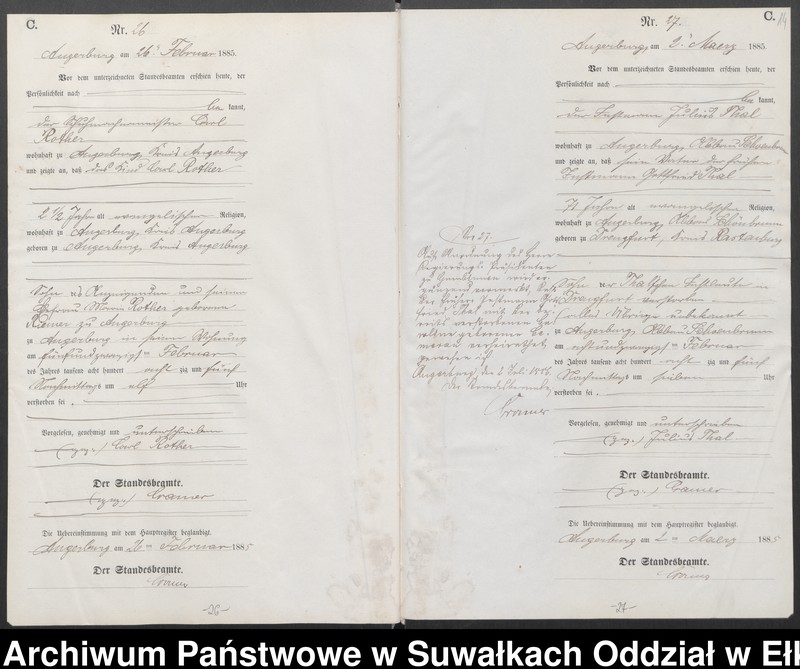 C.
Nr. 26
Angerburg am 26ten Februar 1885.
Vor dem unterzeichneten Standesbeamten erschien heute, der
Persönlichkeit nach
be kannt,
der Schuhmachermeister Carl
Rother
wohnhaft zu Angerburg, Kreis Angerburg
und zeigte an, daß das Kind Carl Rother
2 1/2 Jahr alt evangelischer Religion,
wohnhaft zu Angerburg, Kreis Angerburg
geboren zu Angerburg, Kreis Angerburg
Sohn des Anzeigenden und seiner
Ehefrau Marie Rother geborenen
zu Angerburg
zu Angerburg in seiner Wohnung
am fünfundzwanzigsten Februar
des Jahres tausend acht hundert achtzig und fünf
Nachmittags um elf Uhr
verstorben sei.
Vorgelesen, genehmigt und unterschrieben
(gez.) Carl Rother
Der Standesbeamte.
(gez.) Cramer
Die Uebereinstimmung mit dem Hauptregister beglaubigt.
Angerburg am 26ten Februar 1885
Der Standesbeamte.
Cramer
-26-
C.
Nr. 27.
Angerburg, am 2ten Maerz 1885.
Vor dem unterzeichneten Standesbeamten erschien heute, der
Persönlichkeit nach
be kannt,
der Instmann Julius Thal
wohnhaft zu Angerburg,
und zeigte an, daß sein Vater der frühere
Instmann Gottfried Thal
71 Jahre alt evangelischer Religion,
wohnhaft zu Angerburg,
geboren zu Drengfurt, Kreis Rastenburg
Sohn der Thalschen Instleute in
Drengfurt verstorben
alles Uebrige unbekannt
zu Angerburg,
am achtundzwanzigsten Februar
des Jahres tausend acht hundert achtzig und fünf
Nachmittags um sieben Uhr
verstorben sei.
Vorgelesen, genehmigt und unterschrieben
(gez.) Julius Thal
Der Standesbeamte.
(gez.) Cramer
Die Uebereinstimmung mit dem Hauptregister beglaubigt.
Angerburg am 2ten Maerz 1885
Der Standesbeamte.
Cramer
-27-
No 27.
Auf Anordnung des Herrn
Regierungs Präsidenten
zu Gumbinnen wird
vermerkt, daß
der frühere Instmann Gott
fried Thal mit der be
reits verstorbenen
geborene
verheirathet
gewesen ist.
Angerburg, den 2. Juli 1886.
Der Standesbeamte
Cramer
Archiwum Państwowe w Suwałkach Oddział w Eł